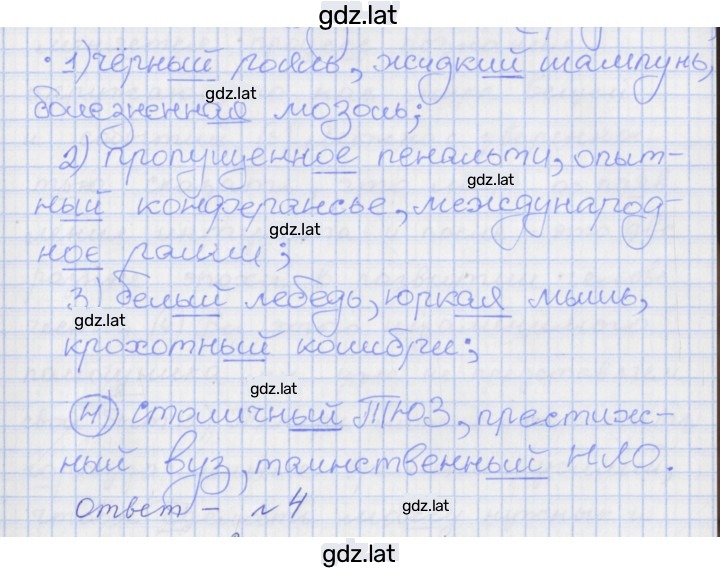 gdz.lat
1) чёрный рояль, жидкий шампунь,
gdz.lat
болезненная мозоль;
2) пропущенное пенальти, опыт-
gdz.lat
ный конферансье, международ-
gdz.lat
ное ралли;
3) белый лебедь, юркая мышь,
gdz.lat
крохотный колибри;
gdz.lat
4) столичный ТЮЗ, престиж-
ный вуз, таинственный НЛО.
Ответ - №4
gdz.lat
gdz.lat